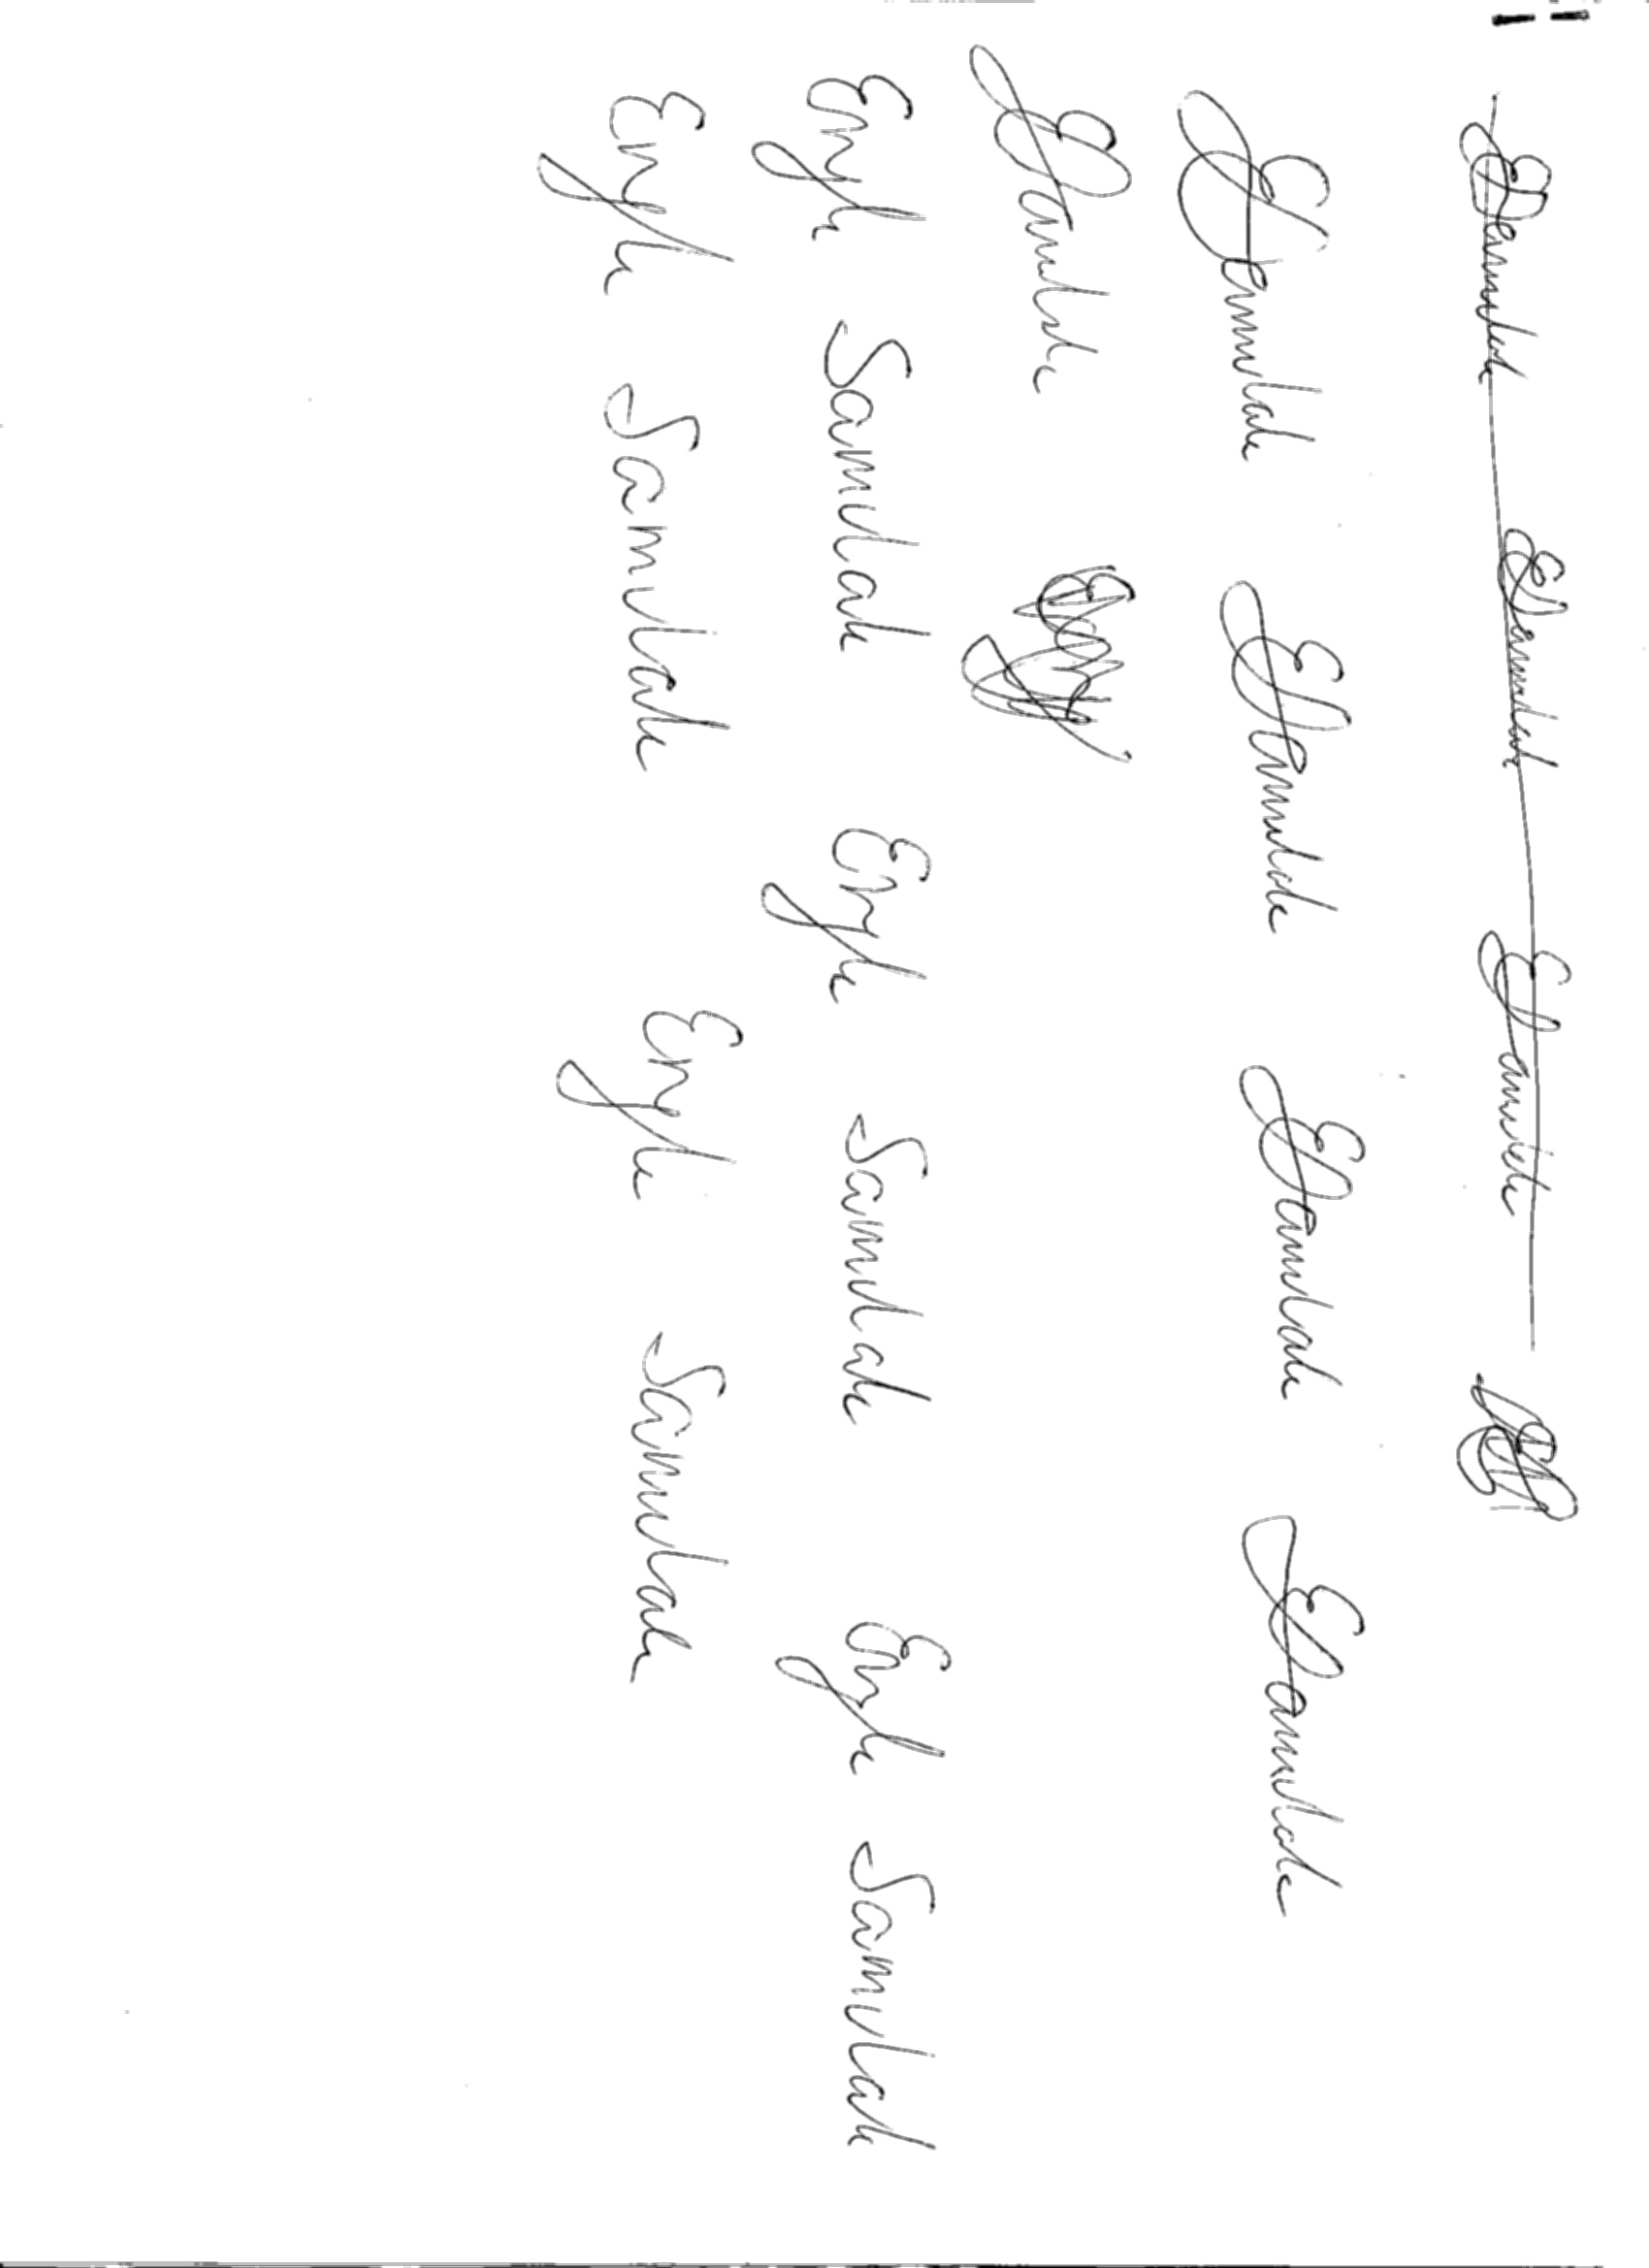 ESamulak ESamulak ESamulak
ESamulak ESamulak ESamulak ESamulak
ESamulak
Eryk Samulak Eryk Samulak Eryk Samulak
Eryk Samulak Eryk Samulak